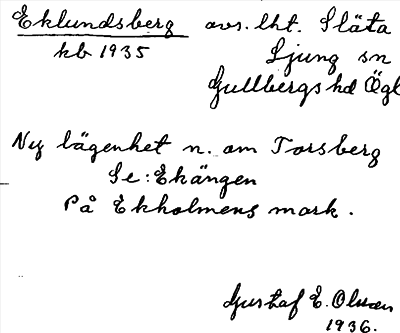 Eklundsberg avs. lht. Släta
kb 1935 Ljung sn
Gullbergs hd Ögl
Ny lägenhet n. om Torsberg
Se: Ekängen
På Ekholmens mark.
Gustaf E. Olsson
1936.